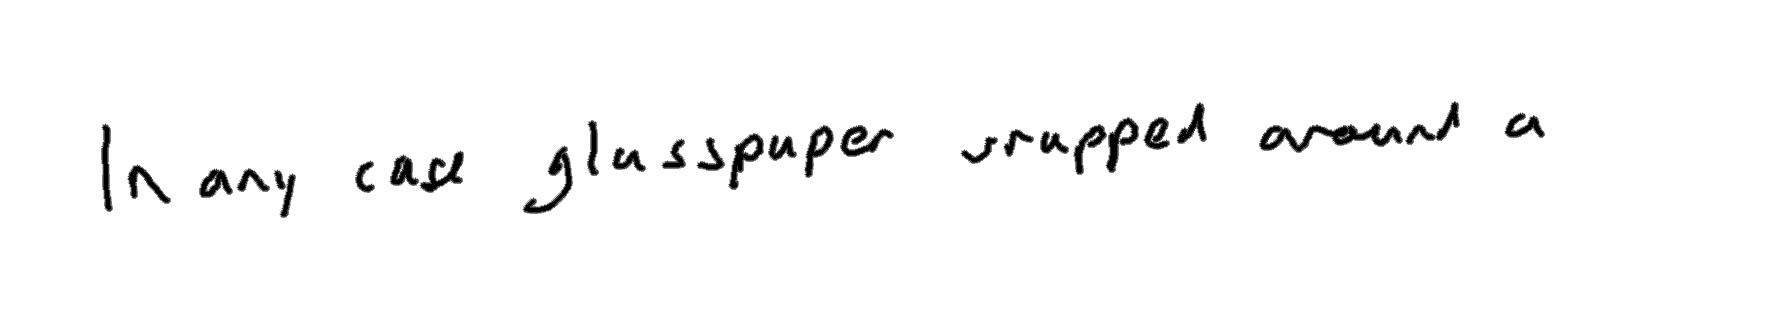 In any case glasspaper wrapped around a